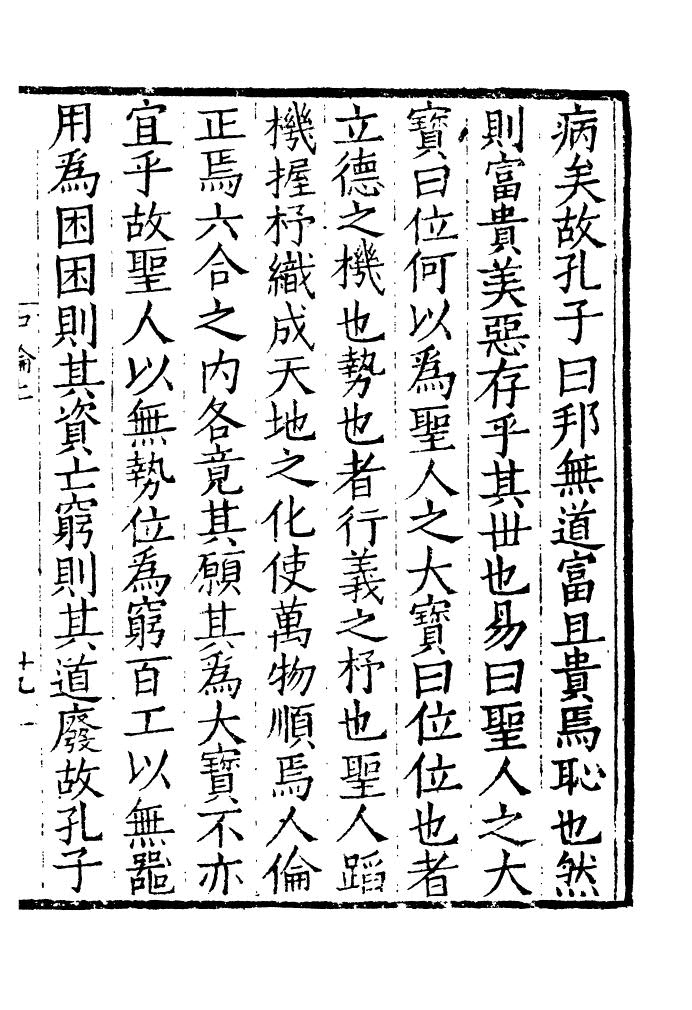 病矣故孔子曰邦無道富且貴焉恥也然
則富貴美惡存乎其丗也易曰聖人之大
寶曰位何以爲聖人之大寶曰位位也者
立德之機也勢也者行義之杼也聖人蹈
機握杼織成天地之化使萬物順焉人倫
正焉六合之内各竟其願其爲大寶不亦
宜乎故聖人以無勢位爲窮百工以無噐
用爲困困則其資亡窮則其道廢故孔子
十九